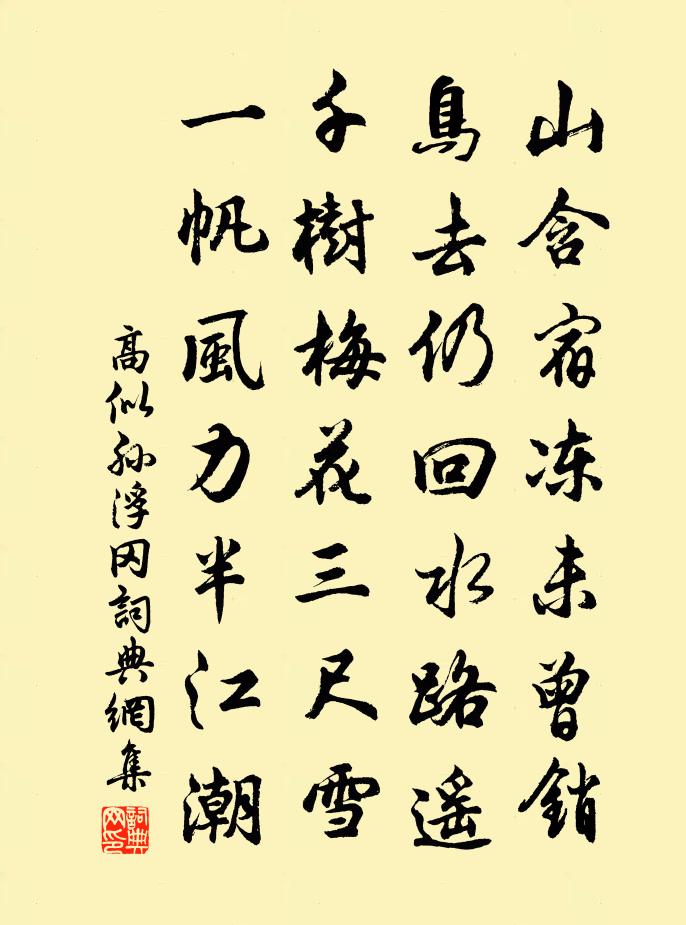 山含宿冻未曾銷
鳥去仍回水路遥
千樹梅花三尺雪
一帆風力半江潮
高似孙浮冈詞典網集
詞典
网印